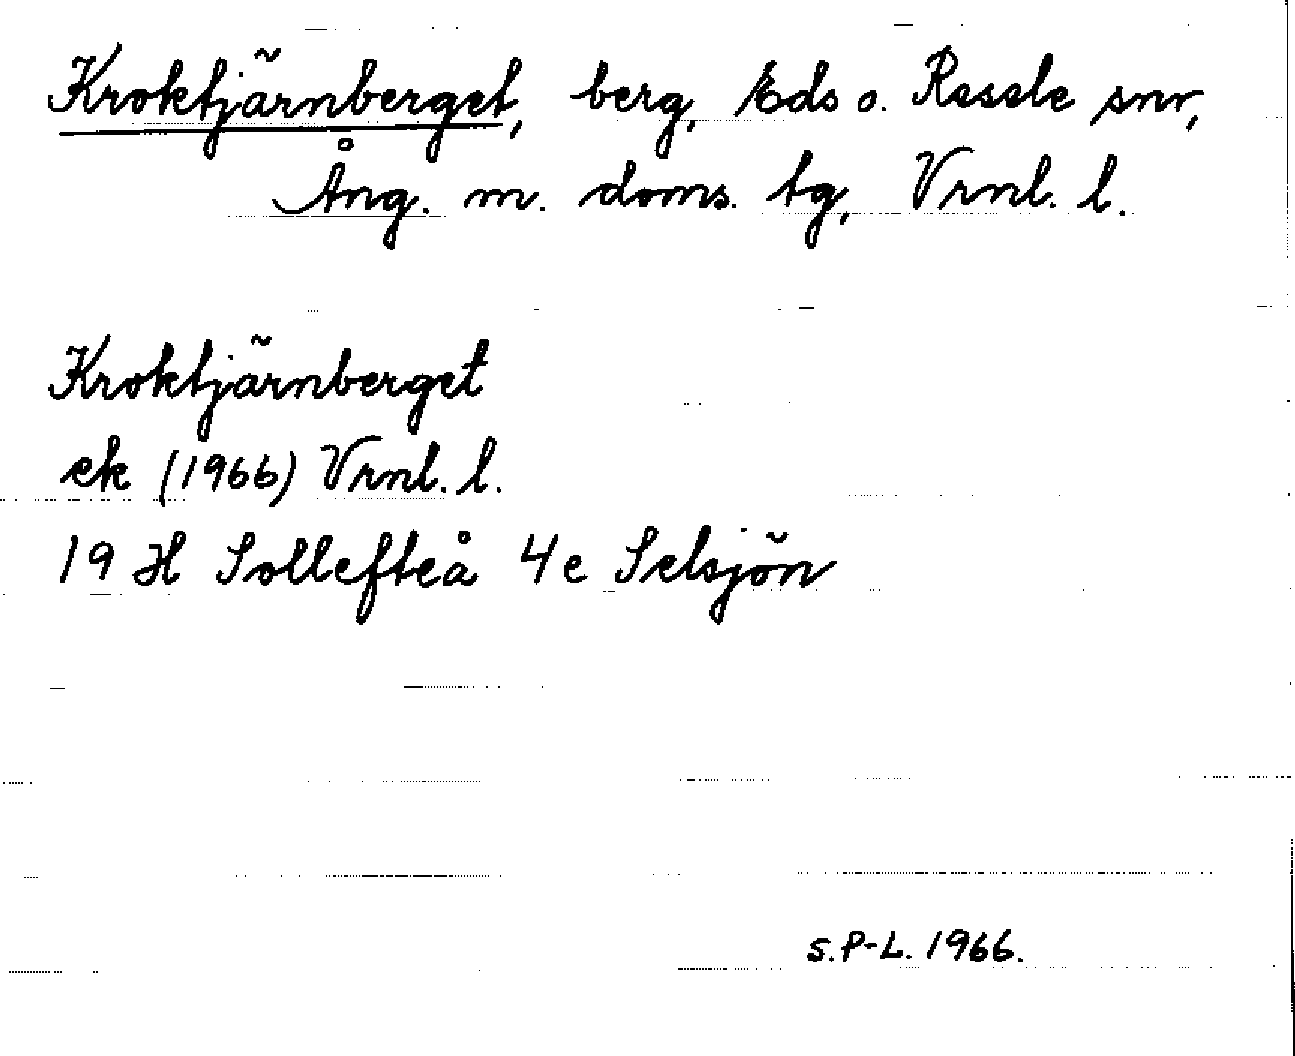 Kroktjärnberget, berg, Eds o. Resele snr,
Ång. m. doms. tg, Vrnl. l.
Kroktjärnberget
ek (1966) Vrnl. l.
19 H Sollefteå 4e Selsjön
S.P-L. 1966.